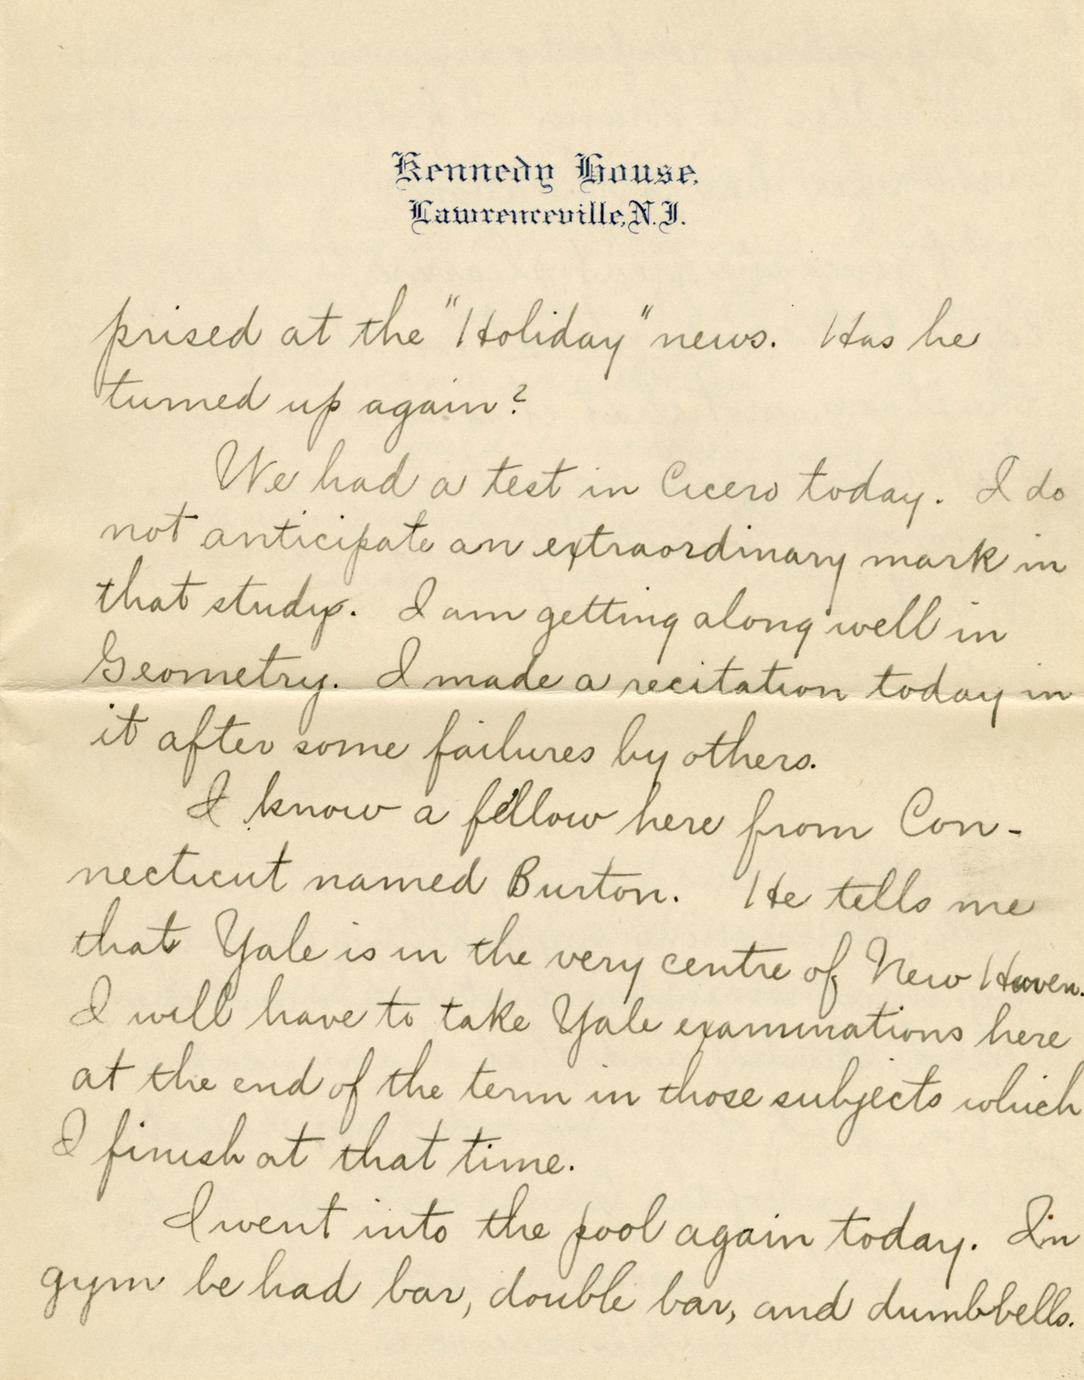 Kennedy House,
Lawrenceville, N.J.
prised at the "Holiday" news. Has he
turned up again?
We had a test in Cicero today. I do
not anticipate an extraordinary mark in
that study. I am getting along well in
Geometry. I made a recitation today in
it after some failures by others.
I know a fellow here from Con-
necticut named Burton. He tells me
that Yale is in the very centre of New Haven.
I will have to take Yale examinations here
at the end of the term in those subjects which
I finish at that time.
I went into the pool again today. In
gym be had bar, double bar, and dumbbells.